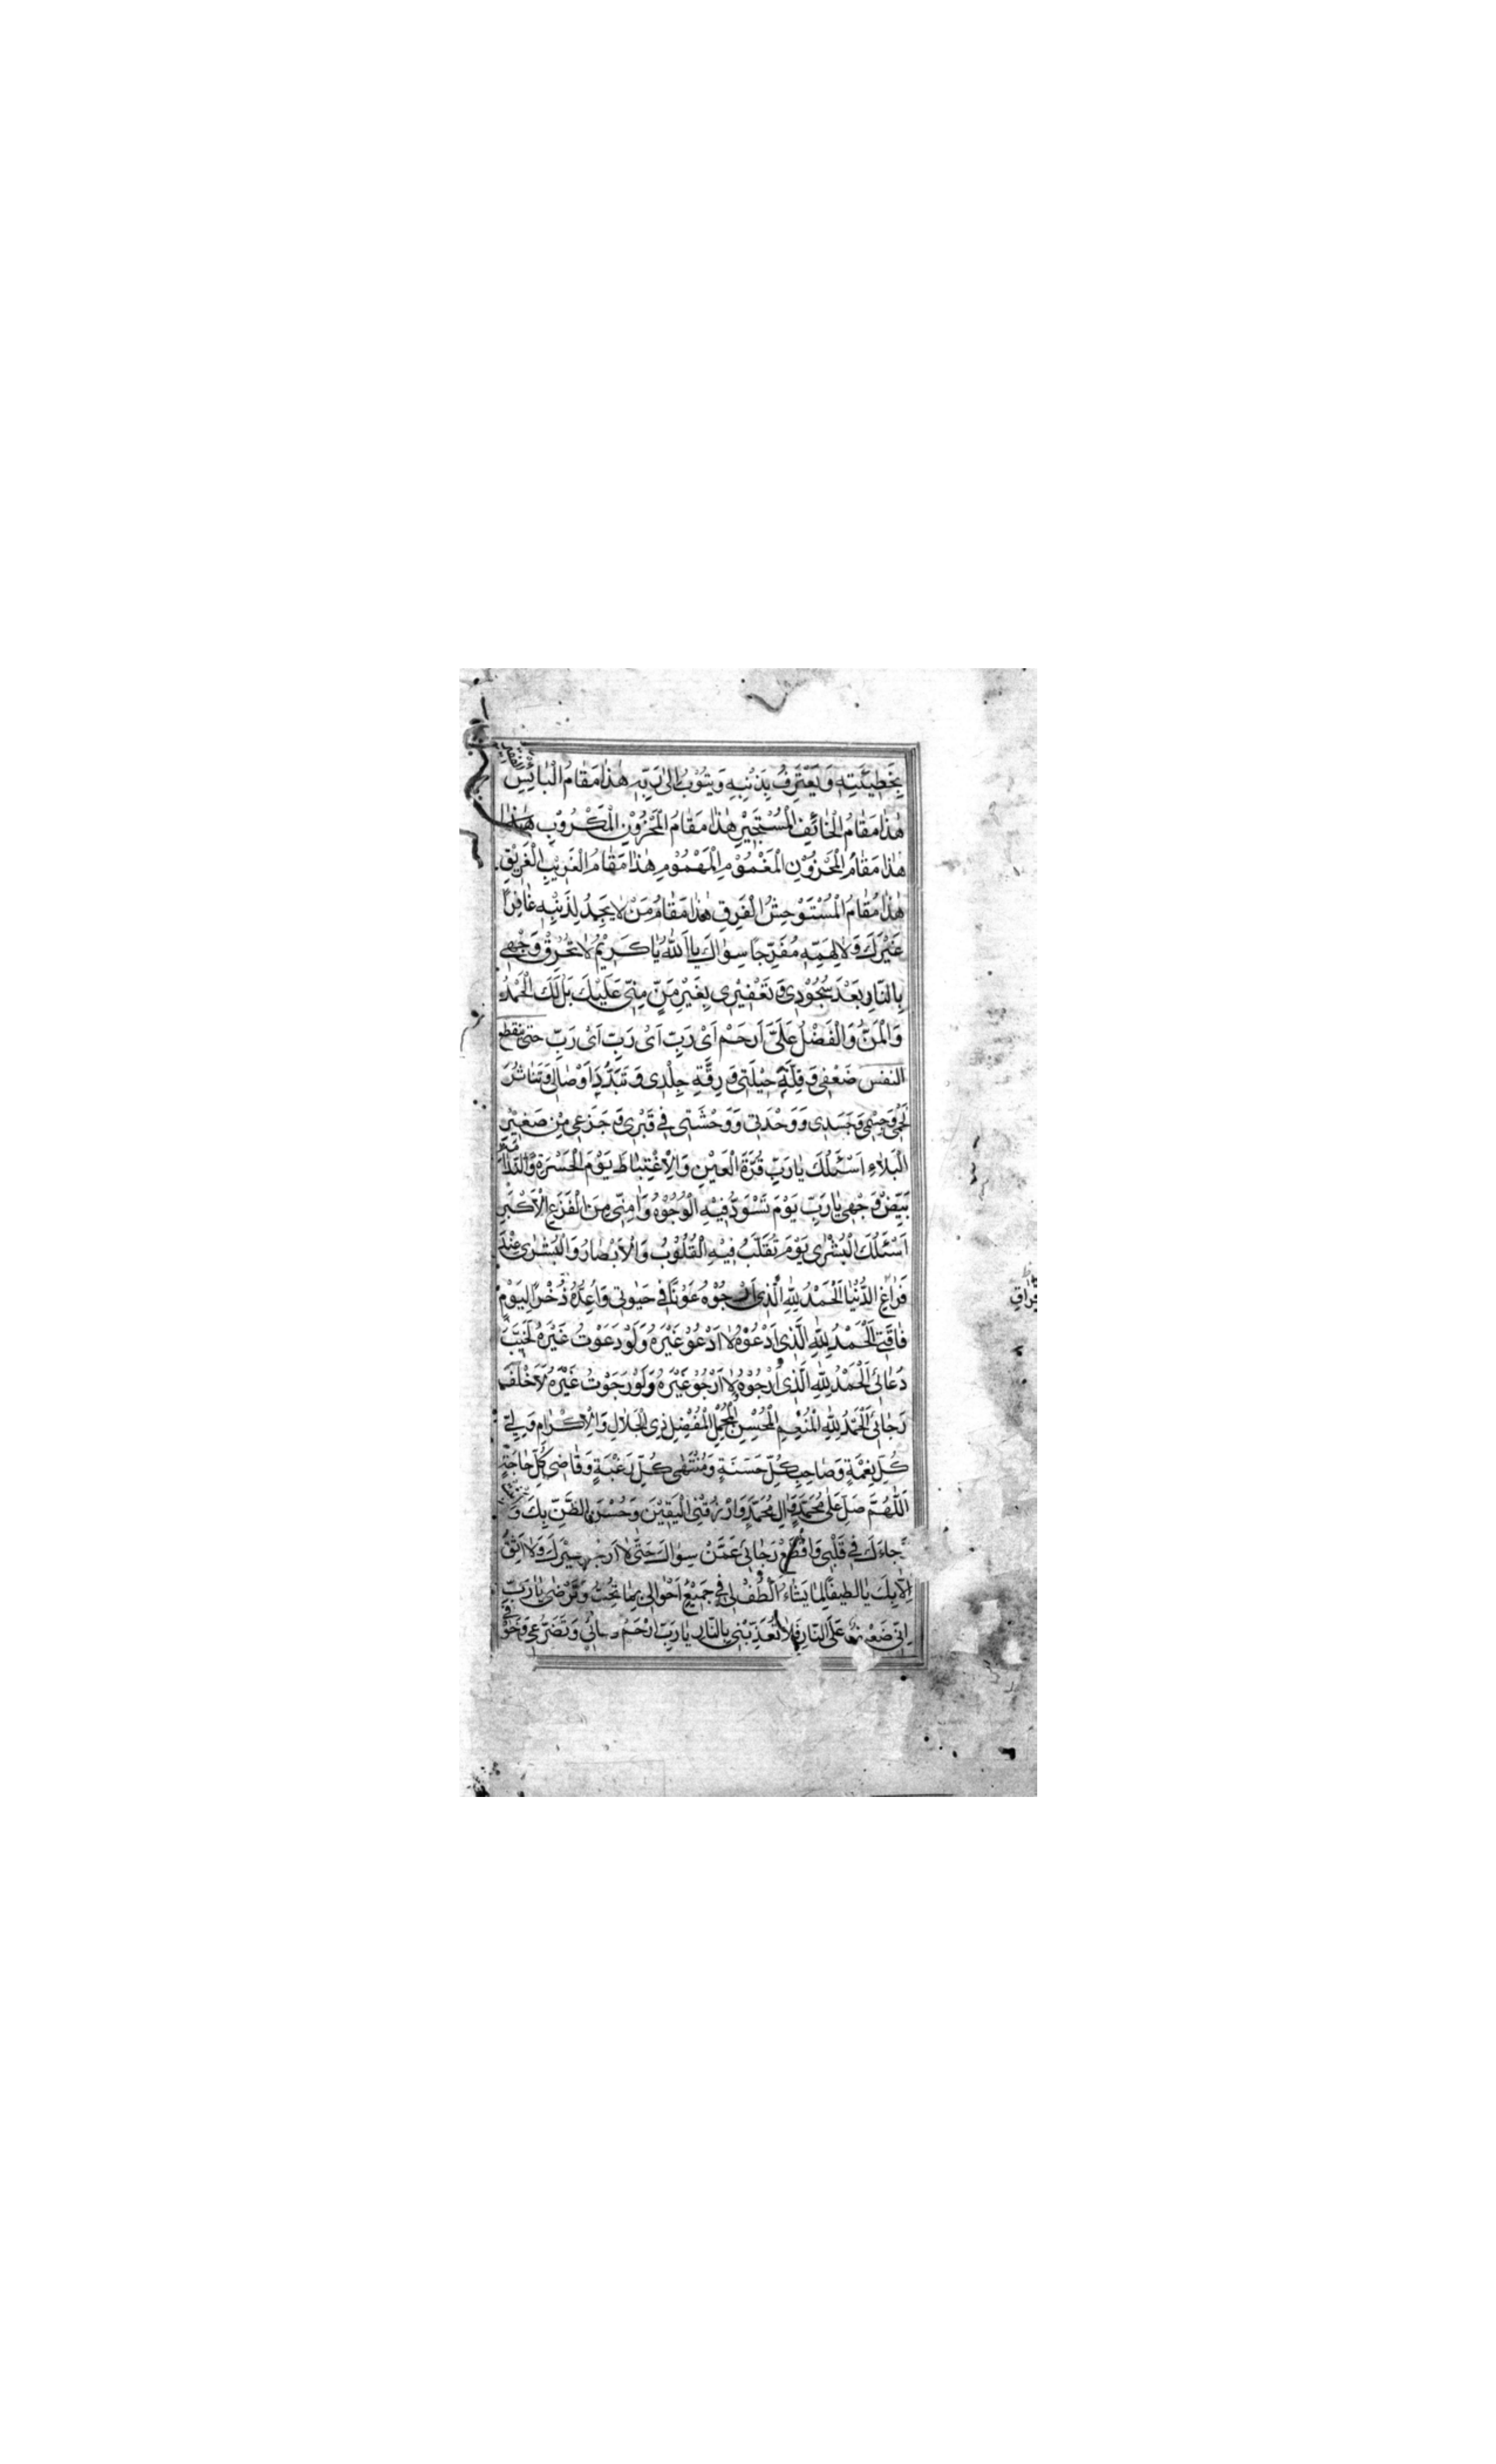 بِخَطِيئَتِهِ وَيَعْتَرِفُ بِذَنْبِهِ وَيَتُوبُ اِلىٰ رَبِّهِ هٰذا مَقامُ الْبائِسِ الفقیر
هٰذا مَقامُ الْخائِفِ الْمُسْتَجِيْرِ هٰذا مَقامُ الْمَحْزُوْنِ الْمَكْرُوْبِ هٰذا
هٰذا مَقامُ الْمَحْزُوْنِ الْمَغْمُوْمِ الْمَهْمُوْمِ هٰذا مَقامُ الْغَرِيْبِ الْغَرِيْقِ
هٰذا مَقامُ الْمُسْتَوْحِشُ الْفَرِقِ هٰذا مَقامُ مَنْ لايَجِدُ لِذَنْبِهِ غافِرًا
غَيْرَكَ وَلا لِهَمِّهِ مُفَرِّجًا سِواكَ يا اَللهُ يا كَرِيْمُ لا تُحْرِقْ وَجْهِي
بِالنّارِ بَعْدَ سُجُوْدِي وَتَعْفِيْرِي بِغَيْرِ مَنٍّ مِنّي عَلَيْكَ بَلْ لَكَ الْحَمْدُ
وَالْمَنُّ وَالْفَضْلُ عَلَيَّ اَرْحَمْ اَيْ رَبِّ اَيْ رَبِّ اَيْ رَبِّ حتى ینقطع
النفس ضَعْفِي وَقِلَّةَ حِيْلَتي وَرِقَّةِ جِلْدِي وَتَبَدُّدِ اَوْصالي وَتَناثُرَ
لَحْمي وَجِسْمي وَجَسَدي وَوَحْدَتي وَوَحْشَتي في قَبْري وَجَزَعي مِنْ صَغِيْرِ
الْبَلاءِ اَسْئَلُكَ يا رَبِّ قُرَّةَ الْعَيْنِ وَالْاِغْتِباطَ يَوْمَ الْحَسْرَةِ وَالنَّدامَةِ
بَيِّضْ وَجْهي يا رَبِّ يَوْمَ تَسْوَدُّ فِيْهِ الْوُجُوْهُ وَامِنّي مِنَ الْفَزَعِ الْاَكْبَرِ
اَسْئَلُكَ الْبُشْرى يَوْمَ تُقَلَّبُ فِيْهِ الْقُلُوْبُ وَالْاَبْصارُ وَالْبُشْرى عِنْدَ
فَراغِ الدُّنْيا اَلْحَمْدُ لِلّٰهِ الَّذي اَرْجُوْهُ عَوْنًا في حَيٰوتي وَاُعِدُّهُ ذُخْرًا لِيَوْمِ
فاقَتي اَلْحَمْدُ لِلّٰهِ الَّذي اَدْعُوْهُ وَلا اَدْعُوْ غَيْرَهُ وَلَوْ دَعَوْتُ غَيْرَهُ لَخَيَّبَ
دُعائي اَلْحَمْدُ لِلّٰهِ الَّذي اَرْجُوْهُ وَلا اَرْجُوْ غَيْرَهُ وَلَوْ رَجَوْتُ غَيْرَهُ لَاَخْلَفَ
رَجائي اَلْحَمْدُ لِلّٰهِ الْمُنْعِمِ الْمُحْسِنِ الْمُجْمِلِ الْمُفْضِلِ ذِي الْجَلالِ وَالْاِكْرامِ وَلِيِّ
كُلِّ نِعْمَةٍ وَصاحِبِ كُلِّ حَسَنَةٍ وَمُنْتَهٰى كُلِّ رَغْبَةٍ وَقاضي كُلِّ حاجَةٍ
اَللّٰهُمَّ صَلِّ عَلىٰ مُحَمَّدٍ وَالِ مُحَمَّدٍ وَارْزُقْنِي الْيَقِيْنَ وَحُسْنَ الظَّنِّ بِكَ وَ
جاءَكَ في قَلْبي وَاقْطَعْ رَجائي عَمَّنْ سِواكَ حَتّىٰ لا اَرْجُو غَيْرَكَ وَلا اَثِقُ
اِلّا بِكَ يا لَطيفًا لِما يَشاءُ اُلْطُفْ لي في جَميْعِ اَحْوالي بِما تُحِبُّ وَتَرْضٰى يا رَبِّ
اِنّي ضَعيْفٌ عَلَى النّارِ فَلا تُعَذِّبْني بِالنّارِ يا رَبِّ ارْحَمْ دعائي وَتَضَرُّعي وَخَوْفي